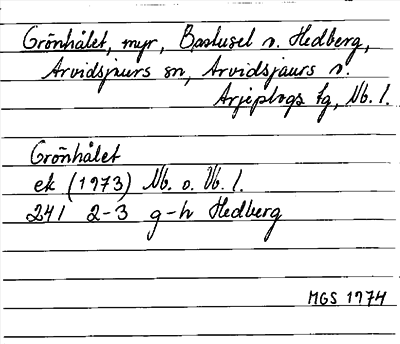 Grönhålet, myr, Bastusel v. Hedberg,
Arvidsjaurs sn, Arvidsjaurs o.
Arjeplogs tg, Nb. l.
Grönhålet
ek (1973) Nb. o. Vb. l.
241 2-3 g-h Hedberg
MGS 1974